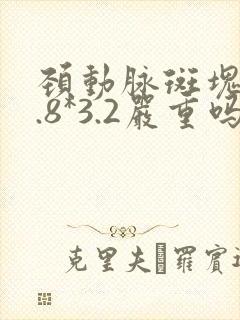 頚動脉斑塊
.8*3.2嚴重嗎
克里夫 羅賓遜